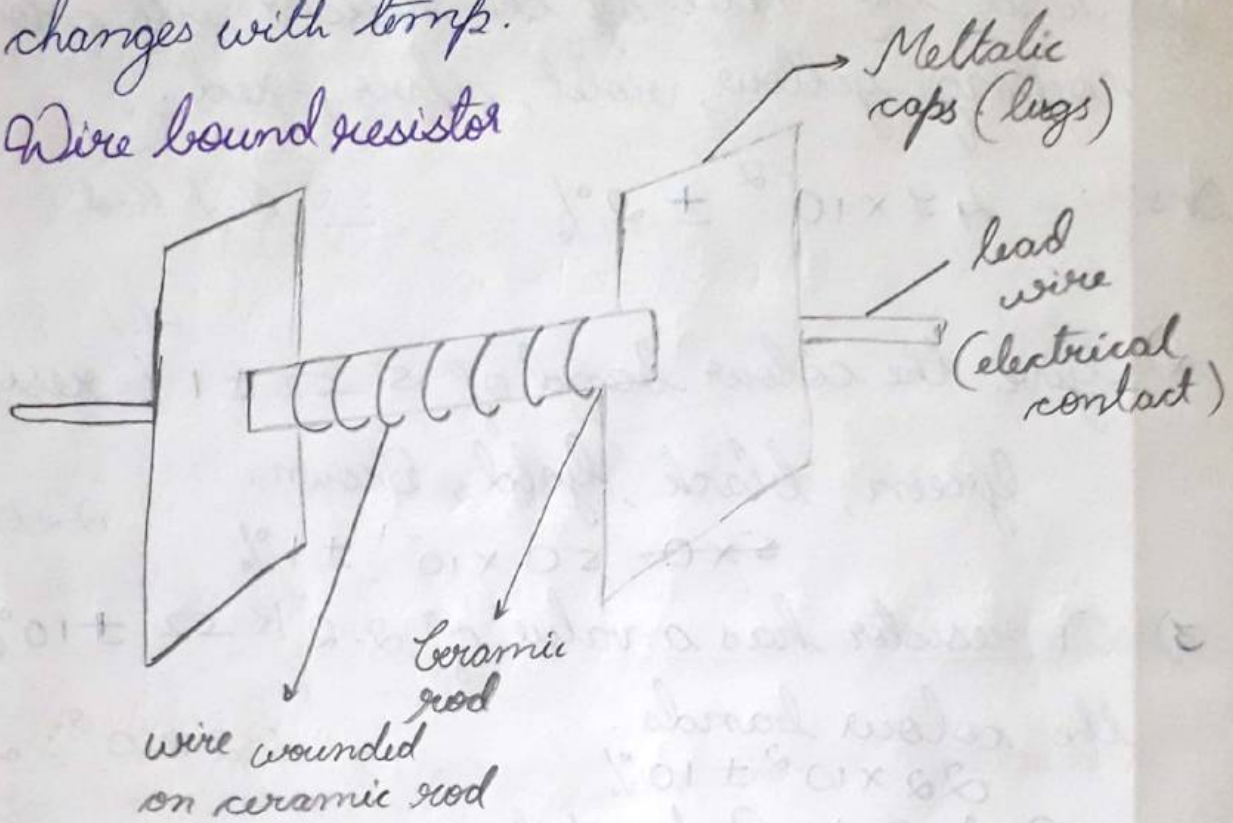 changes with temp.
Wire bound resistor
Mettalic
caps (lugs)
lead
wire
(electrical
contact)
Ceramic
rod
wire wounded
on ceramic rod